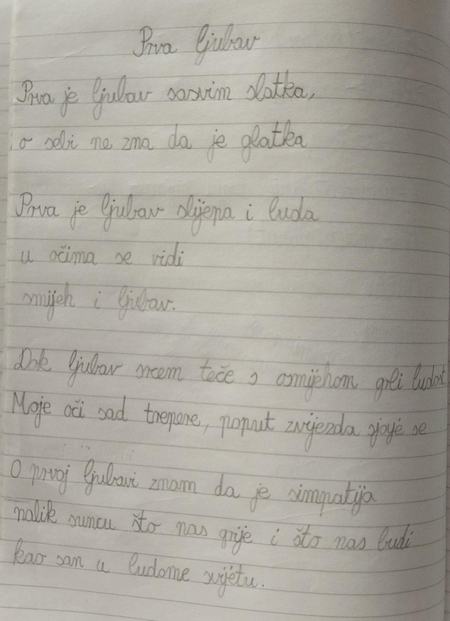 Prva ljubav
Prva je ljubav sasvim slatka,
o sebi ne zna da je glatka
Prva je ljubav slijepa i luda
u očima se vidi
smijeh i ljubav.
Dok ljubav srcem teče s osmijehom grli ludost
Moje oči sad trepere, poput zvijezda sjaje se
O prvoj ljubavi znam da je simpatija
nalik suncu što nas grije i što nas budi
kao san u ludome svijetu.